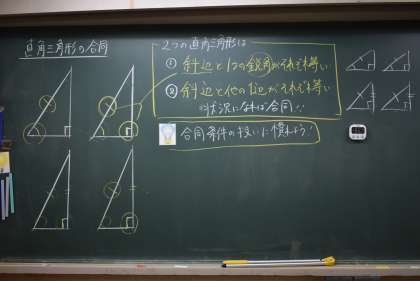 直角三角形の合同
2つの直角三角形は
① 斜辺と1つの鋭角がそれぞれ等しい
② 斜辺と他の1辺がそれぞれ等しい
の状況になれば合同…
合同条件の扱いに慣れよう!